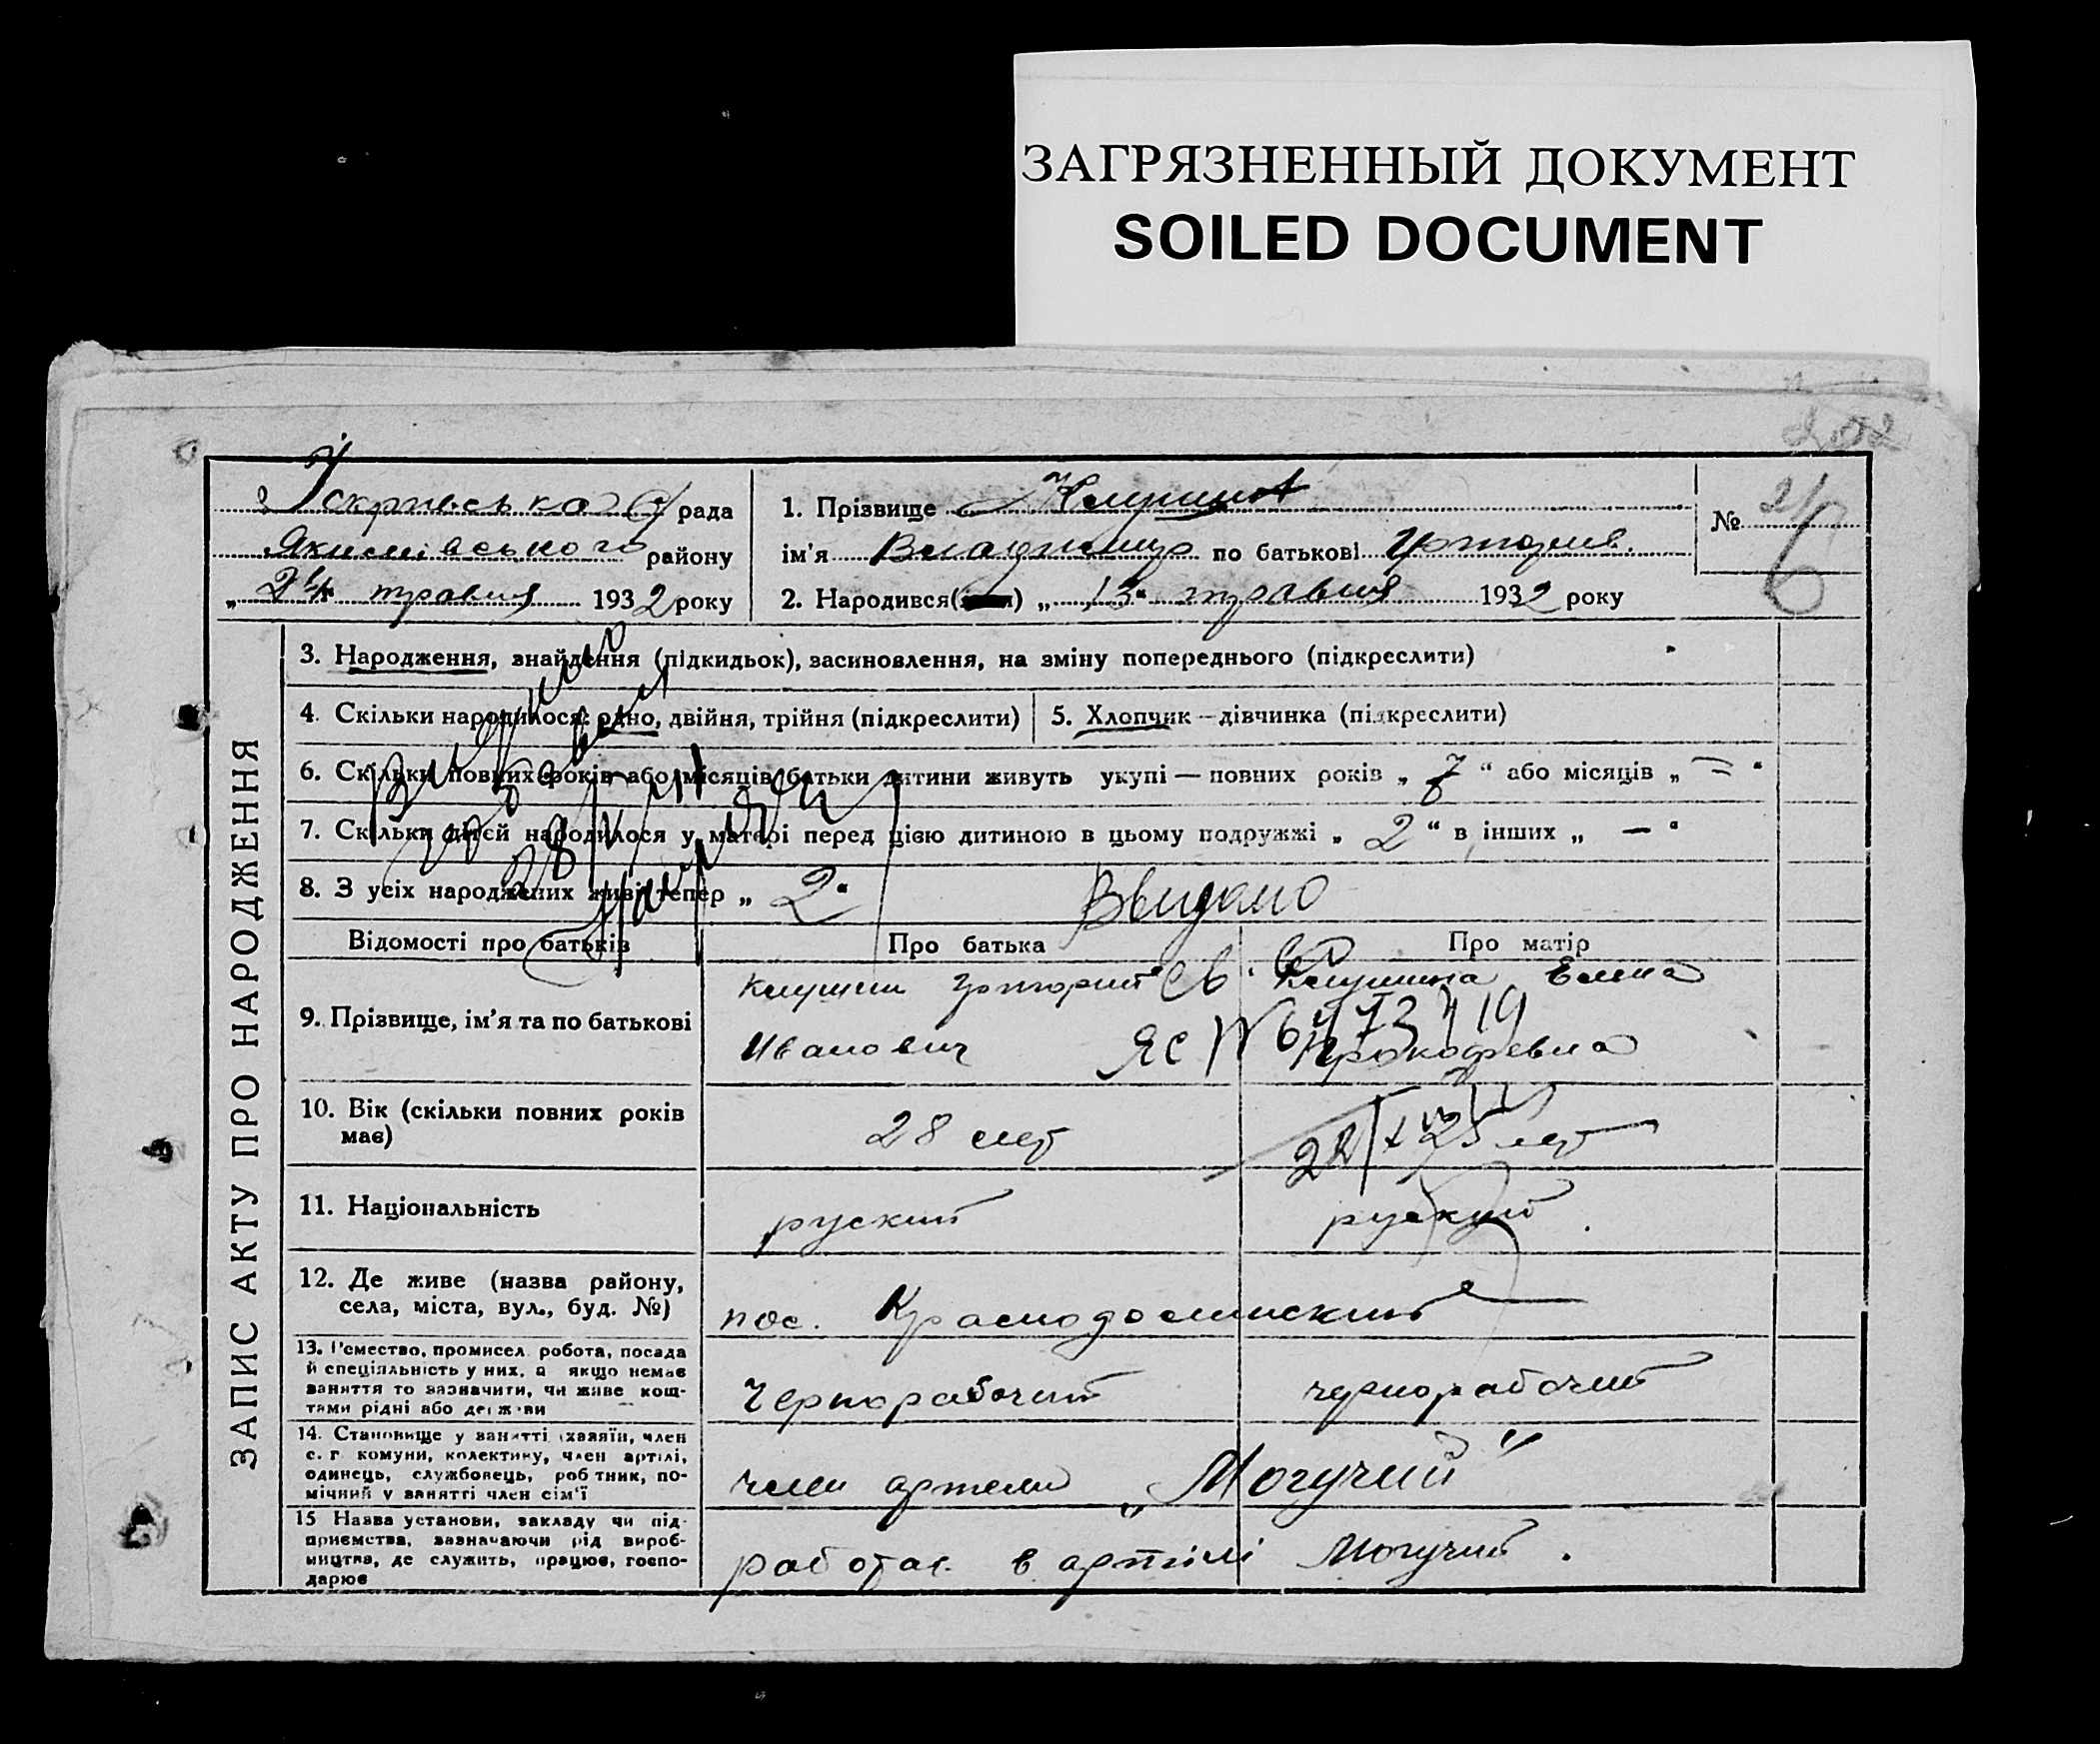 ЗАГРЯЗНЕННЫЙ ДОКУМЕНТ
SOILED DOCUMENT
202
рада
Якимівського району
„ 24 " травня 1932 року
1. Прізвище
ім'я Владимир по батькові Григорив.
2. Народився( ) „ 13 " травня 1932 року
№
ЗАПИС АКТУ ПРО НАРОДЖЕННЯ
3. Народження, знайдення (підкидьок), засиновлення, на зміну попереднього (підкреслити)
4. Скільки народилося: одно, двійня, трійня (підкреслити)
5. Хлопчик—дівчинка (підкреслити)
6. Скільки повних років або місяців батьки дитини живуть укупі — повних років „ 7 " або місяців „ = "
7. Скільки дітей народилося у матері перед цією дитиною в цьому подружжі „ 2 " в інших „ — "
8. З усіх народжених живі тепер „ 2 "
Выдано
Відомості про батьків
Про батька
Про матір
9. Прізвище, ім'я та по батькові
Клушин Григорий
Иванович
Св.
ЯС №
Клушина Елена
Прокофевна
10. Вік (скільки повних років має)
28 лет
25 лет
11. Національність
руский
руский
12. Де живе (назва району,
села, міста, вул., буд. №)
пос. Краснодолинский
13. Ремество, промисел, робота, посада
й спеціяльність у них, а якщо немає
заняття то зазначити, чи живе кош-
тами рідні або держави
Чернорабочий
чернорабочий
14. Становище у занятті (хазяїн, член
с.-г. комуни, колективу, член артілі,
одинець, службовець, робітник, по-
мічний у занятті член сім'ї
член артели „Могучий"
15. Назва установи, закладу чи під-
приємства, зазначаючи рід вироб-
ництва, де служить, працює, госпо-
дарює
работає в артілі Могучий.